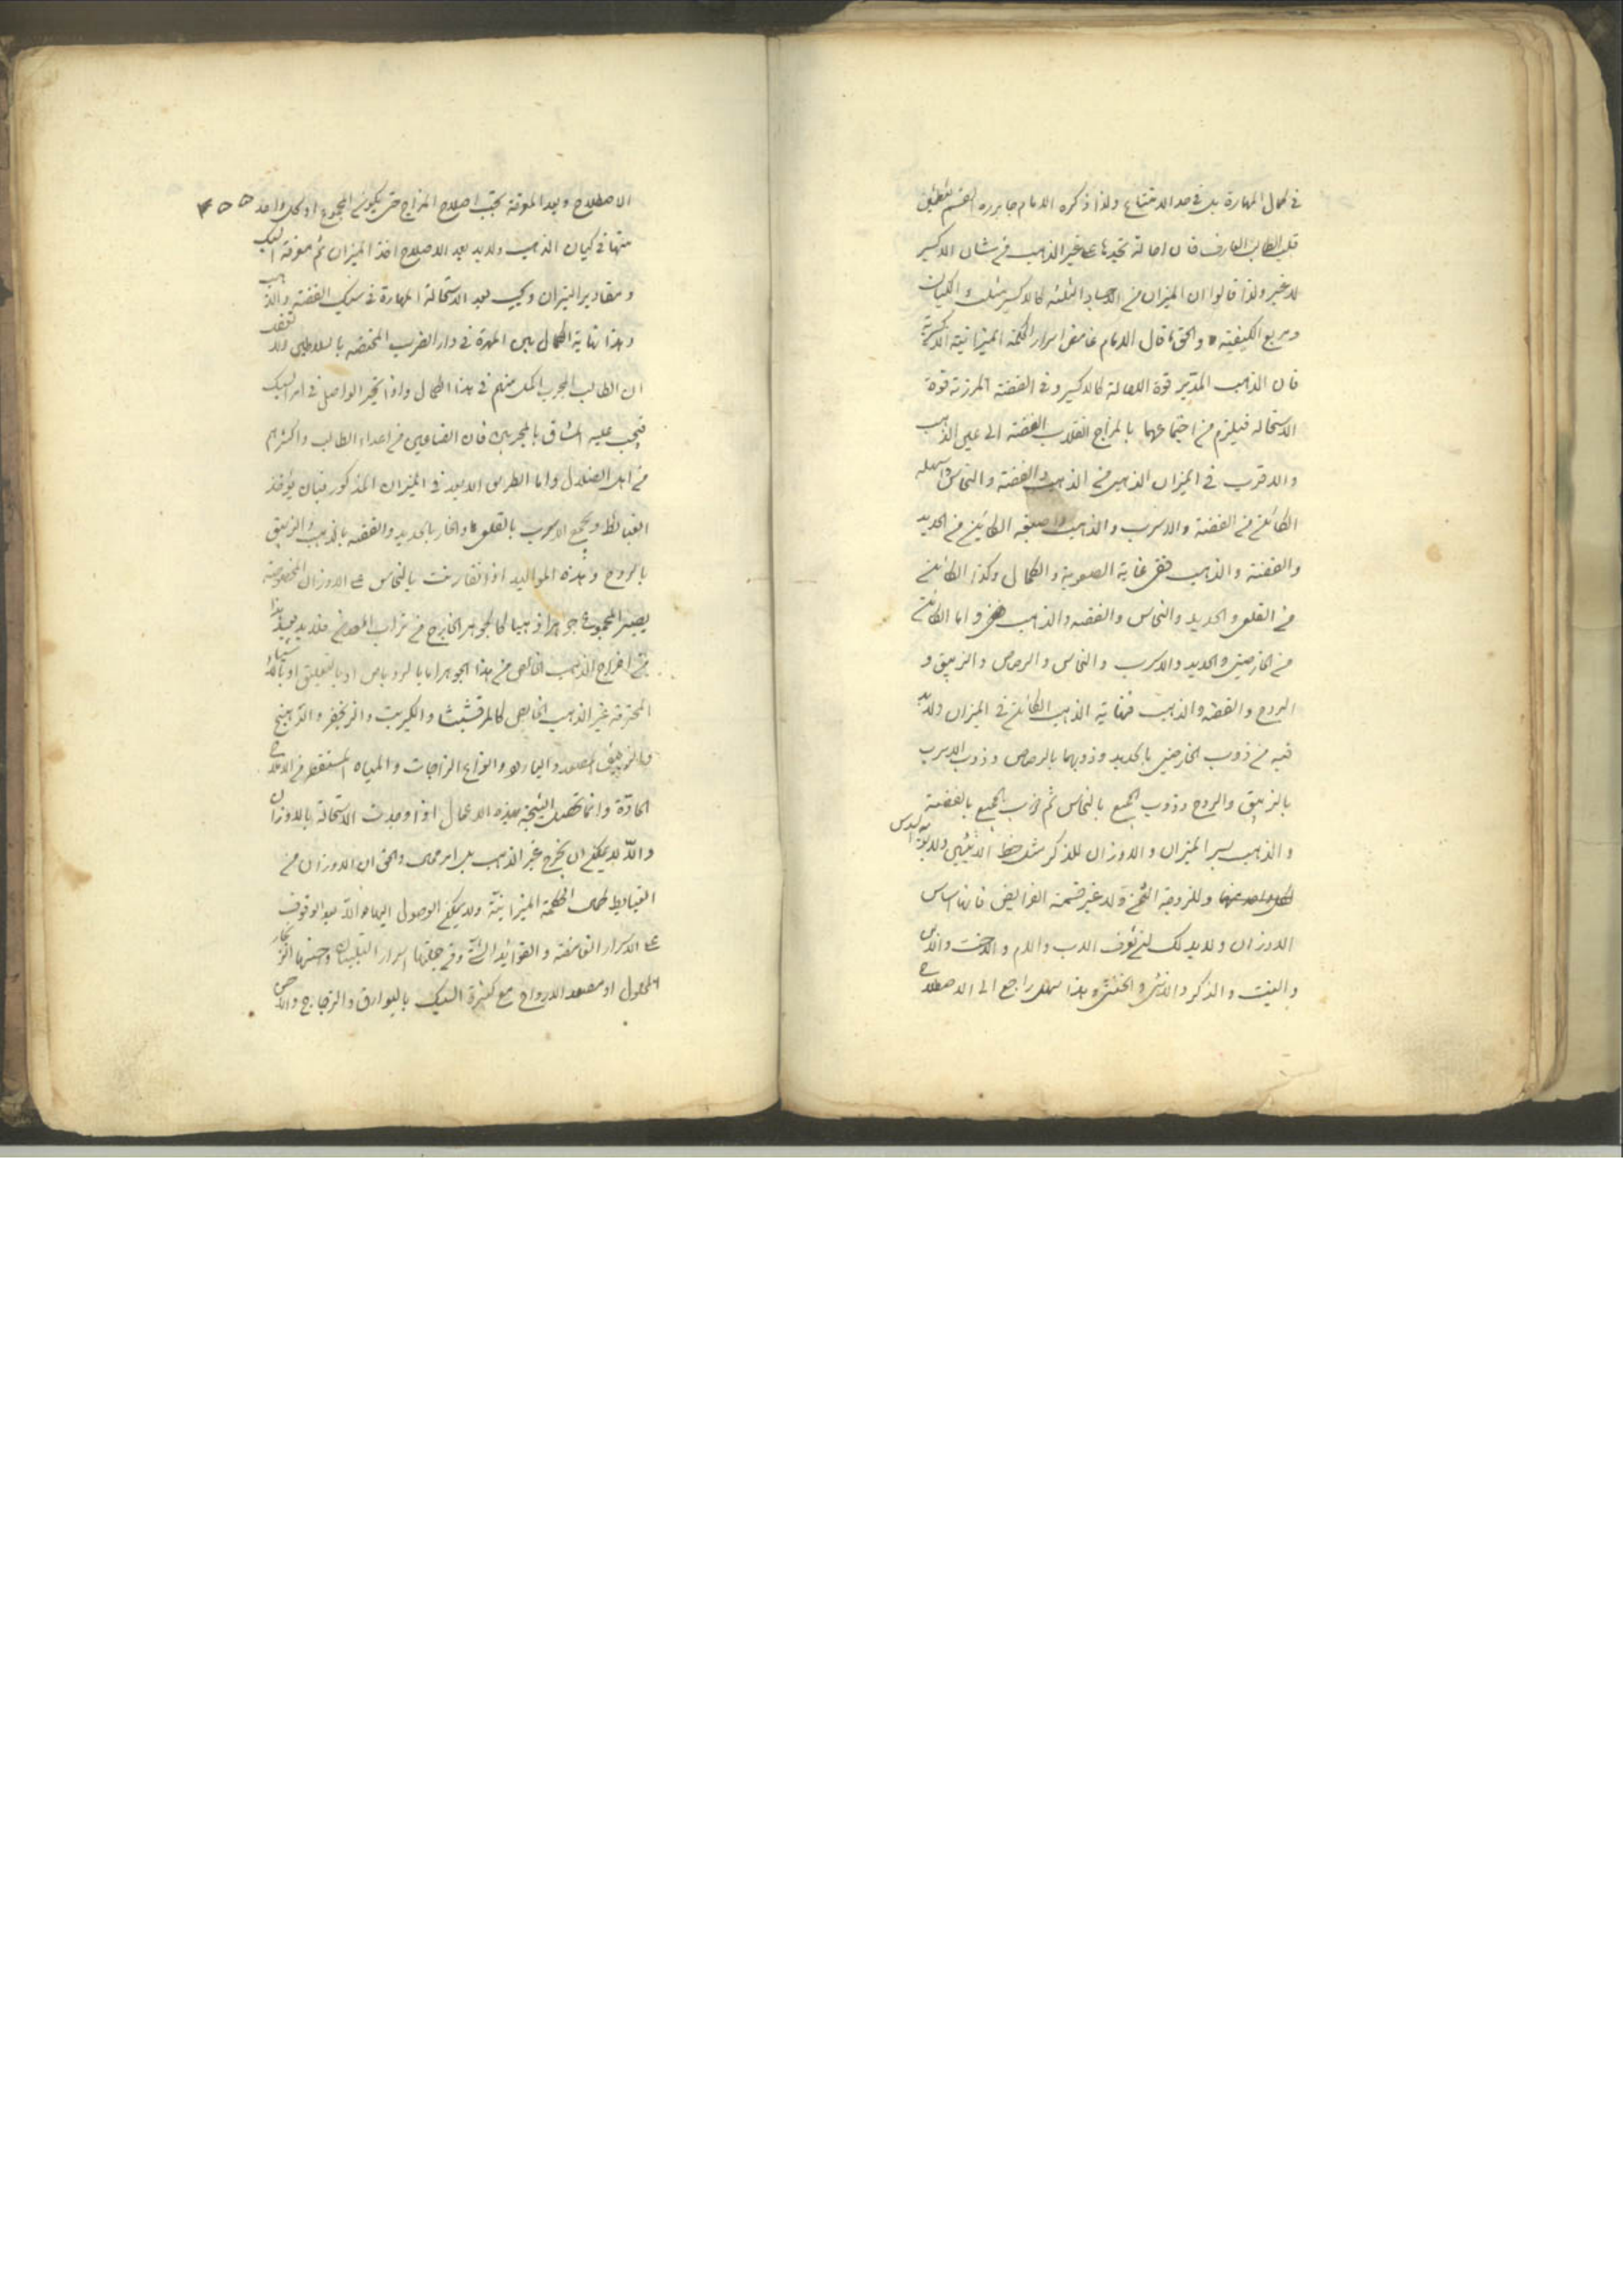 في كمال المهارة بل في حد الامتناع ولذا ذكره الامام جابر ره
قلب الطالب العارف فان احالة غير الذهب في شان الاكسير
لا غير ولذا قالوا ان الميزان من الاجساد الثلثه كالاكسير مثلث الكيان
ومربع الكيفية والحق ما قال الامام غامض اسرار الحكمة الميزانية الاكسيرية
فان الذهب المدبر قوة الاحالة كالاكسير وفي الفضة المرزنة قوة
الاستحالة فيلزم من اجتماعهما بالمزاج انقلاب الفضة الى عين الذهب
والاقرب في الميزان الذهبي من الذهب والفضة والنحاس واسهله
الكائن من الفضة والاسرب والذهب واصعبه الكائن من الحديد
والفضة والذهب ففي غاية الصعوبة والكمال وكذا الكائن
من القلعي والحديد والنحاس والفضه والذهب واما الكائن
من الخارصيني والحديد والاسرب والنحاس والرصاص والزيبق و
الروح والفضه والذهب فنهاية الذهب الكائن في الميزان ولابد
فيه من ذوب الخارصيني بالحديد وذوبهما بالرصاص وذوب الاسرب
بالزيبق والروح وذوب الجميع بالنحاس ثم ذوب الجميع بالفضة
والذهب بسر الميزان والاوزان للذكر مثل حظ الانثيين ولابويه السدس
لكل واحد منهما وللزوجة الثمن ولا غير قسمة الفرايض فانها اساس
الاوزان ولابد لك تعرف الاب والام والاخت والابن
والبنت والذكر والانثى والخنثى وهذا سهل راجع الى الاصطلاح
الاصطلاح وبعد المعرفة يجب اصلاح المزاج حتى يكون المجموع او كل واحد
منها في كيان الذهب ولابد بعد الاصلاح اخذ الميزان ثم معرفة السبك
ومقادير النيران ويجب بعد الاستحالة المهارة في سبك الفضة والذهب
وهذا نهاية الكمال بين المهرة في دار الضرب المختصه بالسلاطين ولا تعتقد
ان الطالب المجرب اكمل منهم في هذا الكمال واذا تحير الواصل في امر السبك
فيجب عليه المشاق بالمجربين فان الصناعين من اعداء الطالب واكثرهم
من اهل الضلال واما الطريق الابعد في الميزان المذكور فبان يؤخذ
ويجمع الاسرب بالقلعي والخار بالحديد والفضه بالذهب والزيبق
بالروح وهذه المواليد اذا تقارنت بالنحاس على الاوزان المخصوصة
يصير المجموع جوهرا ذهبيا كالجوهر الخارج من تراب المعدن فلابد بعد هذا
من اخراج الذهب الخالص من هذا الجوهر اما بالروباص او بالتعليق او بالاشياء
المحرقة غير الذهب الخالص كالمرقشيثا والكبريت والزنجفر والزرنيخ
والزيبق المصعد والبارود وانواع الزاجات والمياه المستقطر من الاملاح
الحادة وانما تحصل النتيجة بهذه الاعمال اذا وجدت الاستحالة بالاوزان
والا لا يمكن ان يخرج غير الذهب بل امر محال والحق ان الاوزان من
الحكمة الميزانية ولا يمكن الوصول اليها الا بعد الوقوف
على الاسرار الغامضة والفوائد وفي جملتها اسرار
المحلول او مصعد الارواح مع كثرة السبك بالبوارق والزجاج